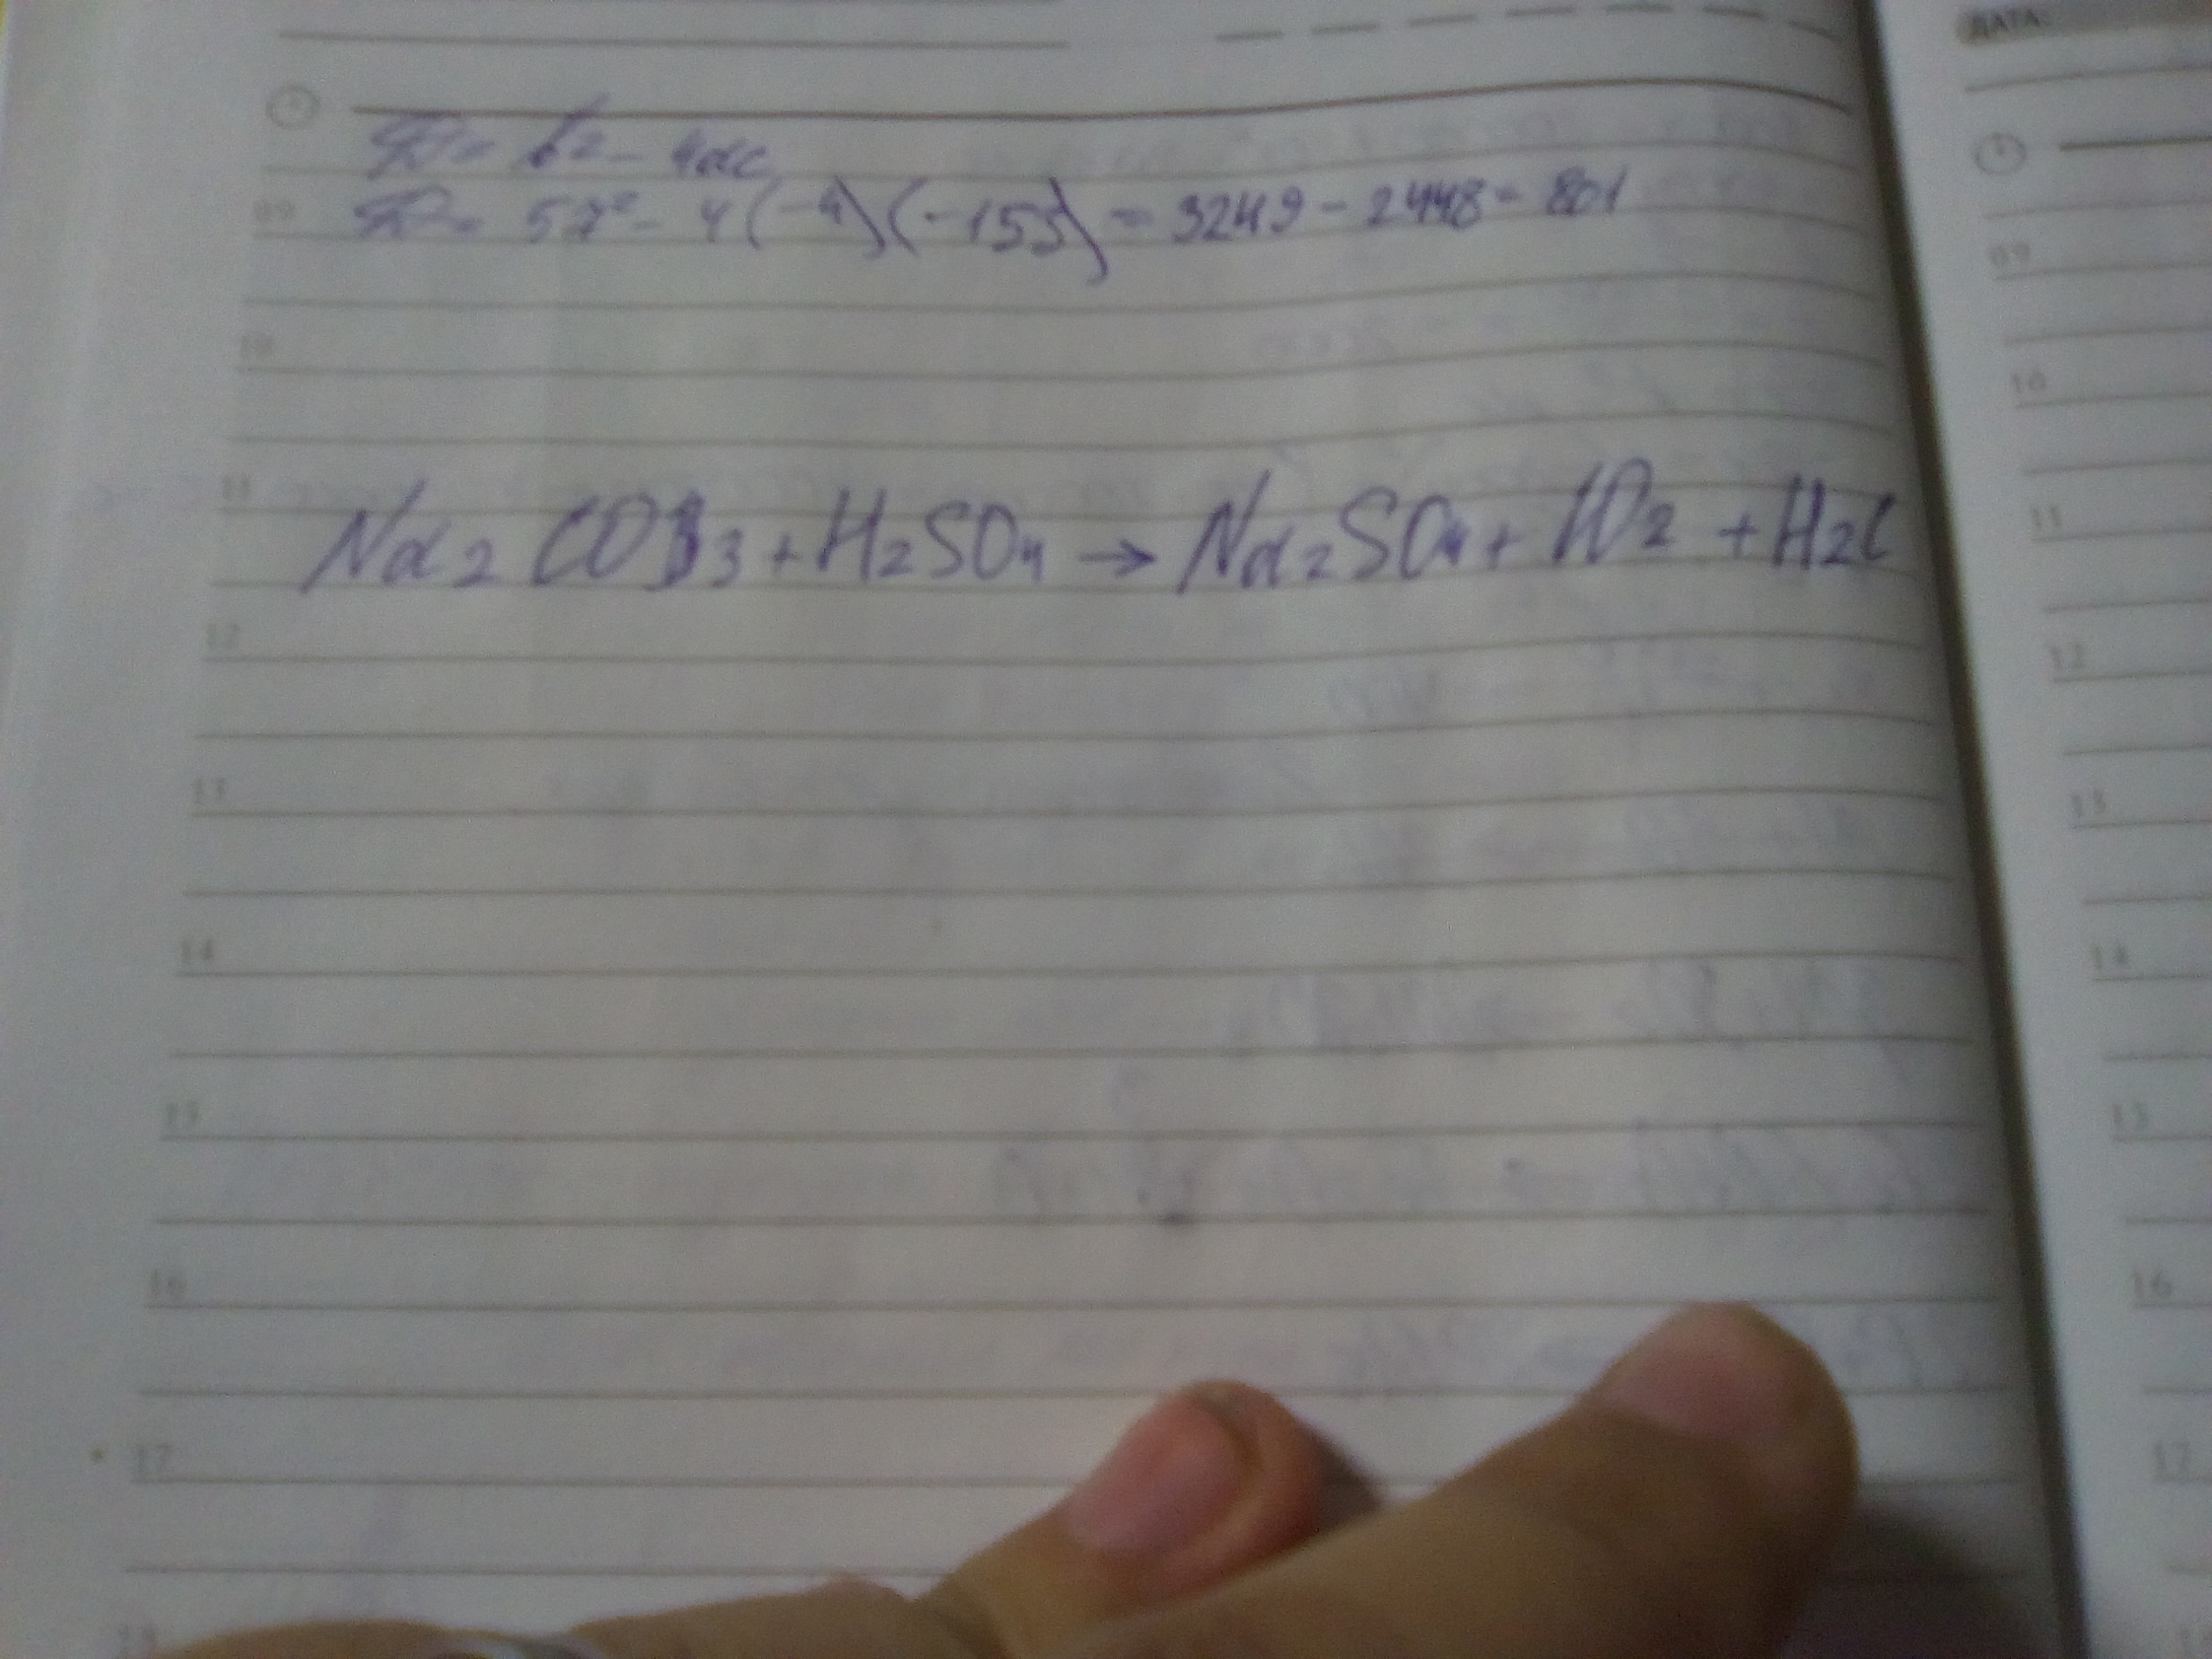 ДАТА:
D = b2 - 4ac
09 D = 57² - 4(-4)(-153) = 3249 - 2448 = 801
10
11 Na2CO3 + H2SO4 → Na2SO4 + CO2 + H2O
12
13
14
15
16
17
18
09
10
11
12
13
14
15
16
17